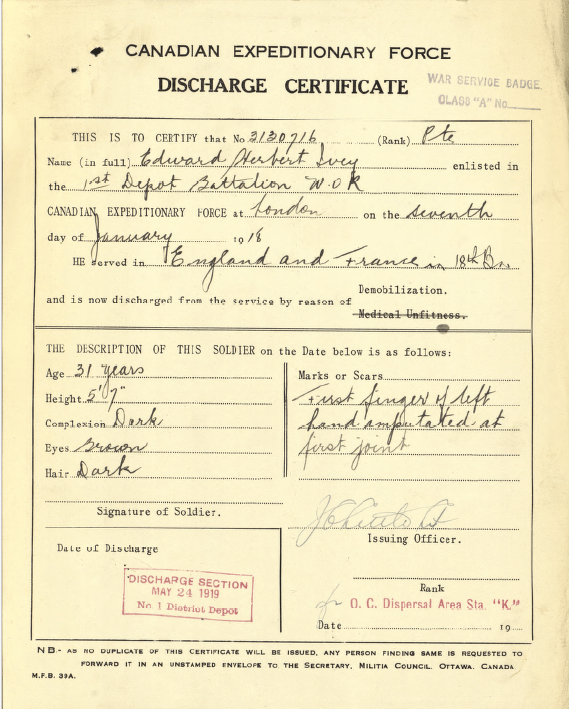 CANADIAN EXPEDITIONARY FORCE
DISCHARGE CERTIFICATE
WAR SERVICE BADGE
CLASS "A" No
THIS IS TO CERTIFY that No 3130716 (Rank) Pte
Name (in full) Edward Herbert Ivey enlisted in
the 1st Depot Battalion W.O.R
CANADIAN EXPEDITIONARY FORCE at London on the seventh
day of January 1918
HE served in England and France in 18th Bn.
and is now discharged from the service by reason of Demobilization.
Medical Unfitness.
THE DESCRIPTION OF THIS SOLDIER on the Date below is as follows:
Age 31 years
Height 5' 7"
Complexion Dark
Eyes Brown
Hair Dark
Marks or Scars
First finger of left
hand amputated at
first joint
Signature of Soldier.
Issuing Officer.
Date of Discharge
DISCHARGE SECTION
MAY 24 1919
No. 1 District Depot
Rank
for O. C. Dispersal Area Sta. "K."
Date 19
NB.- AS NO DUPLICATE OF THIS CERTIFICATE WILL BE ISSUED, ANY PERSON FINDING SAME IS REQUESTED TO
FORWARD IT IN AN UNSTAMPED ENVELOPE TO THE SECRETARY, MILITIA COUNCIL, OTTAWA, CANADA
M.F.B. 39A.